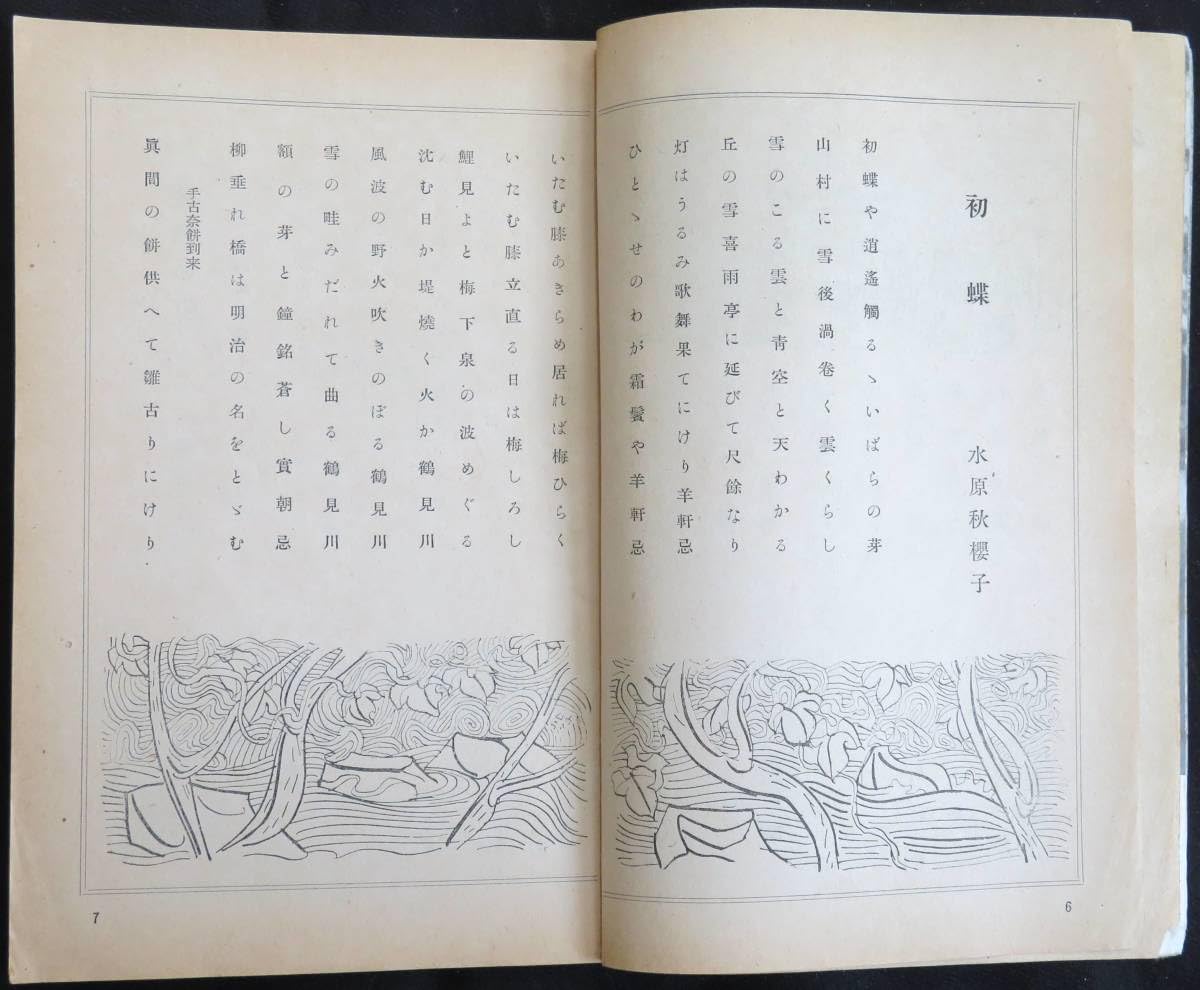 初蝶
水原秋櫻子
初蝶や逍遙觸るゝいばらの芽
山村に雪後渦卷く雲くらし
雪のこる雲と靑空と天わかる
丘の雪喜雨亭に延びて尺餘なり
灯はうるみ歌舞果てにけり羊軒忌
ひとゝせのわが霜鬢や羊軒忌
6
いたむ膝あきらめ居れば梅ひらく
いたむ膝立直る日は梅しろし
鯉見よと梅下泉の波めぐる
沈む日か堤燒く火か鶴見川
風波の野火吹きのぼる鶴見川
雪の畦みだれて曲る鶴見川
額の芽と鐘銘蒼し實朝忌
柳垂れ橋は明治の名をとゞむ
手古奈餅到来
眞間の餅供へて雛古りにけり
7